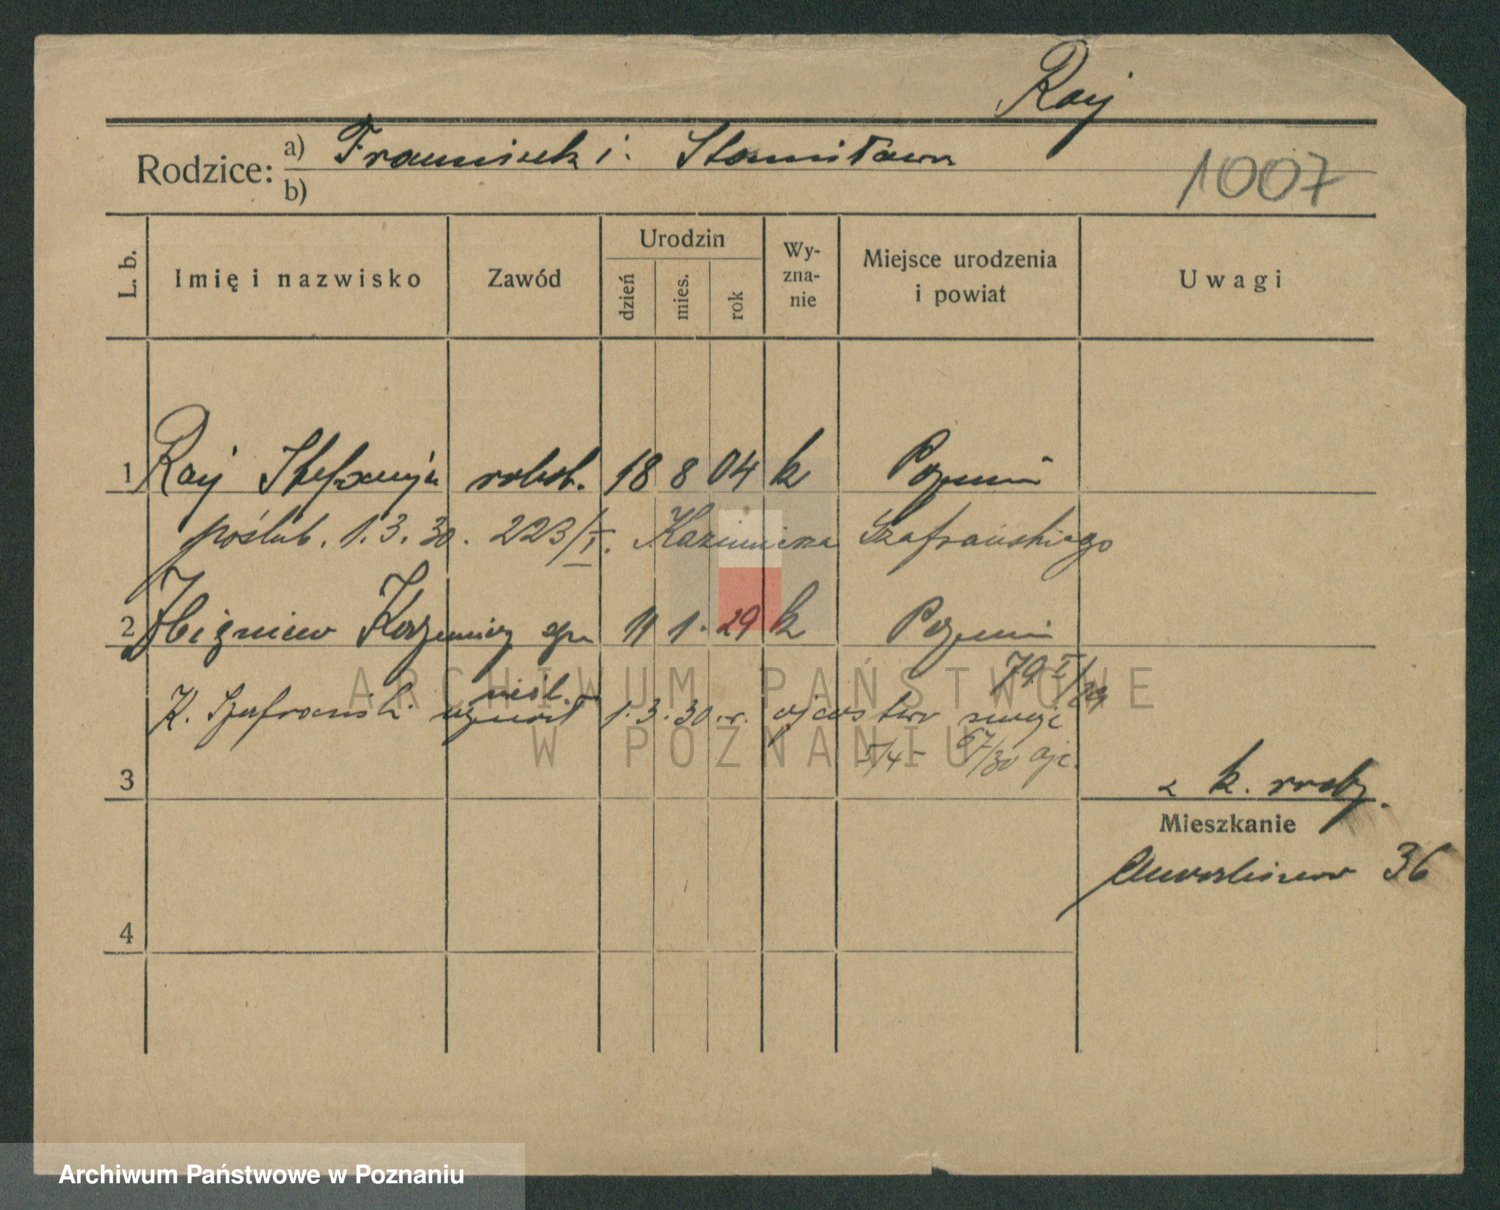 Raij
Rodzice: a) Franciszek i Stanisława
b)
1007
L. b.
Imię i nazwisko
Zawód
Urodzin
dzień
mies.
rok
Wy-
zna-
nie
Miejsce urodzenia
i powiat
Uwagi
1 Raij Stefanija robot. 18 8 04 k Poznań
poślub. 1.3.30. 223/I. Kazimierza Szafrańskiego
2 Zbigniew Kazimierz 11 1. 29 k Poznań
K. Szafrański uznał 1.3.30 r. ojcostwo
nieśl.
79 I/29
67/30
3
k.
Mieszkanie
36
4
ARCHIWUM PAŃSTWOWE
W POZNANIU
Archiwum Państwowe w Poznaniu